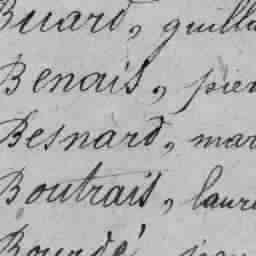 Buard, guilla
Benais, pier
Besnard, mar
Boutrais, laure
Bourdé, pier